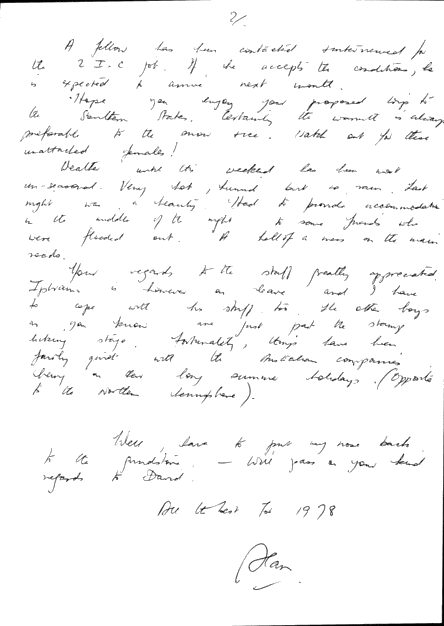 2/.
A fellow has been contacted & interviewed for
the 2 I.C job. If he accepts the conditions, he
is expected to arrive next month.
Hope you enjoy your proposed trip to
the Southern States. Certainly the warmth is always
preferable to the snow & ice. Watch out for those
unattached females!
Weather wise this weekend has been most
un-seasonal. Very hot, humid but no rain. Last
night was a beauty. Had to provide accommodation
in the middle of the night to some friends who
were flooded out. A hell of a mess on the main
roads.
Your regards to the staff greatly appreciated.
is however on leave and I have
to cope with his stuff too. The other boys
as you know are just past the stamp
licking stage. Fortunately, things have been
fairly quiet with the Australian companies
being on their long summer holidays. (Opposite
to the Northern Hemisphere).
Well, have to put my nose back
to the grindstone. — Will pass on your kind
regards to David.
All the best for 1978
Alan.